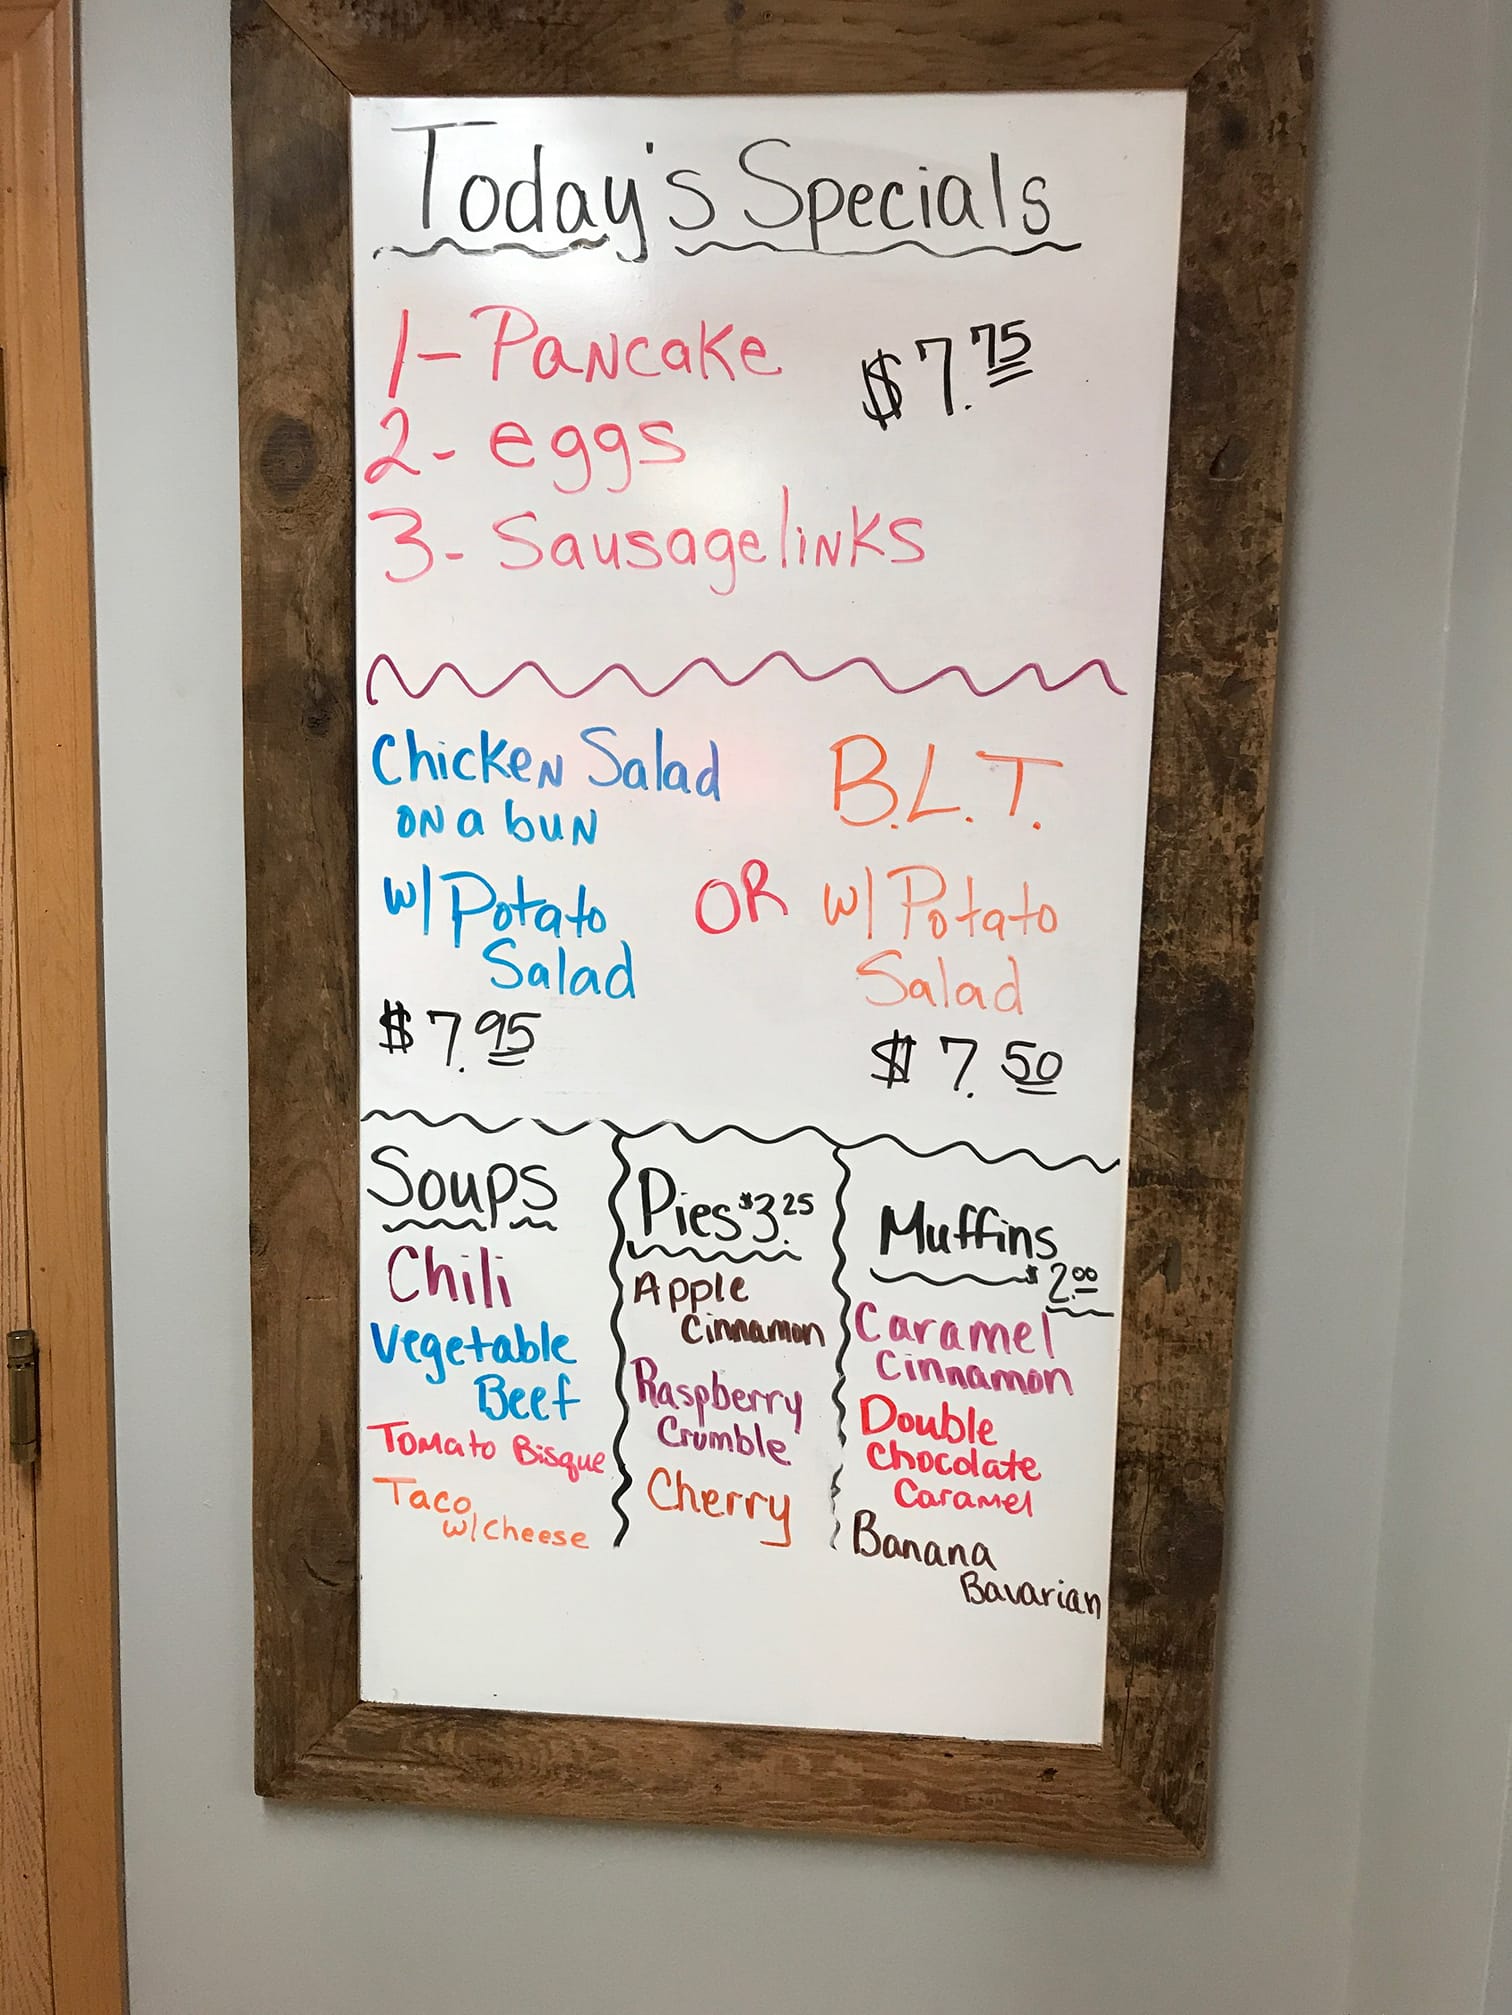 Today's Specials
1- Pancake $7.75
2- eggs
3- Sausage links
Chicken Salad
on a bun
w/ Potato
Salad
$7.95
OR
B.L.T.
w/ Potato
Salad
$7.50
Soups
Chili
Vegetable
Beef
Tomato Bisque
Taco
w/ Cheese
Pies $3.25
Apple
Cinnamon
Raspberry
Crumble
Cherry
Muffins
$2.00
Caramel
Cinnamon
Double
Chocolate
Caramel
Banana
Bavarian